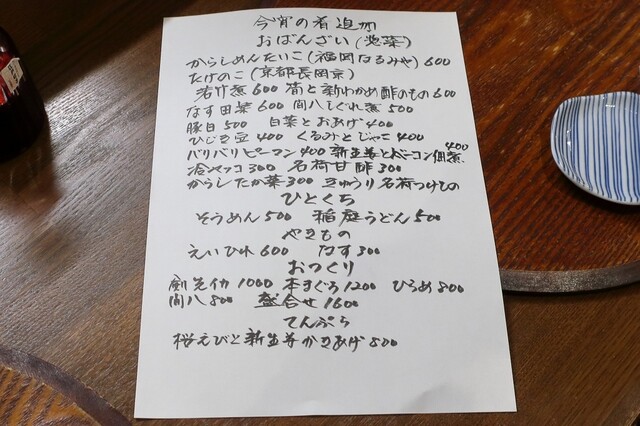 今宵の肴 追加
おばんざい(惣菜)
からしめんたいこ(福岡なるみや)600
たけのこ(京都長岡京)
若竹煮600 筍と新わかめ酢のもの600
なす田楽600 間八しぐれ煮500
豚目500 白菜とおあげ400
ひじき豆400 くるみとじゃこ400
バリバリピーマン400 新生姜とベーコン佃煮400
冷ヤッコ300 名荷甘酢300
からしたか菜300 きゅうり名荷つけもの
ひとくち
そうめん500 稲庭うどん500
やきもの
えいひれ600 なす300
おつくり
剣先イカ1000 本まぐろ1200 ひらめ800
間八800 盛合せ1600
てんぷら
桜えびと新生姜かきあげ800